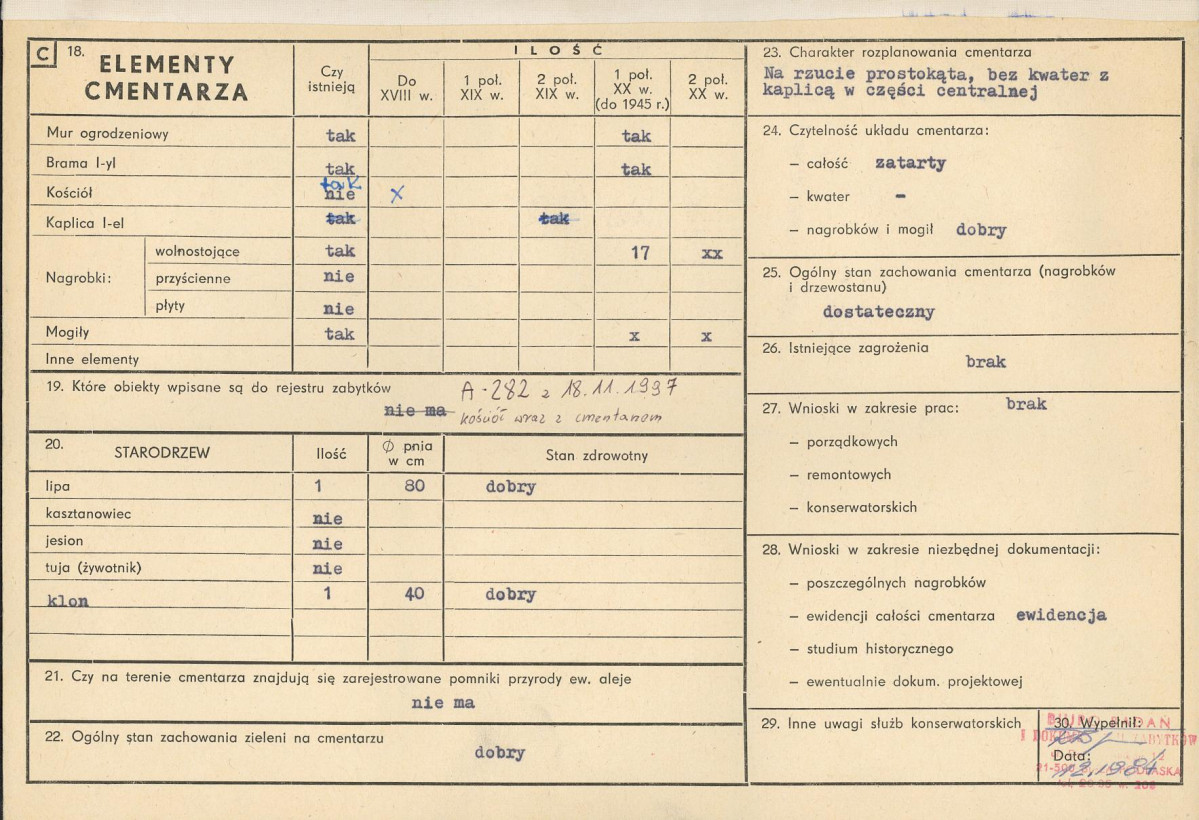 C 18. ELEMENTY CMENTARZA
Czy istnieją
ILOŚĆ
Do XVIII w.
1 poł. XIX w.
2 poł. XIX w.
1 poł. XX w. (do 1945 r.)
2 poł. XX w.
Mur ogrodzeniowy tak tak
Brama I-yl tak tak
tak
Kościół nie x
Kaplica I-el tak tak
Nagrobki: wolnostojące tak 17 xx
przyścienne nie
płyty nie
Mogiły tak x x
Inne elementy
19. Które obiekty wpisane są do rejestru zabytków A-282 z 18.11.1997
nie ma kościół wraz z cmentarzem
20. STARODRZEW Ilość Ø pnia w cm Stan zdrowotny
lipa 1 80 dobry
kasztanowiec nie
jesion nie
tuja (żywotnik) nie
klon 1 40 dobry
21. Czy na terenie cmentarza znajdują się zarejestrowane pomniki przyrody ew. aleje
nie ma
22. Ogólny stan zachowania zieleni na cmentarzu
dobry
23. Charakter rozplanowania cmentarza
Na rzucie prostokąta, bez kwater z
kaplicą w części centralnej
24. Czytelność układu cmentarza:
– całość zatarty
– kwater -
– nagrobków i mogił dobry
25. Ogólny stan zachowania cmentarza (nagrobków
i drzewostanu)
dostateczny
26. Istniejące zagrożenia
brak
27. Wnioski w zakresie prac: brak
– porządkowych
– remontowych
– konserwatorskich
28. Wnioski w zakresie niezbędnej dokumentacji:
– poszczególnych nagrobków
– ewidencji całości cmentarza ewidencja
– studium historycznego
– ewentualnie dokum. projektowej
29. Inne uwagi służb konserwatorskich
30. Wypełnił:
BIURO BADAŃ
Data: